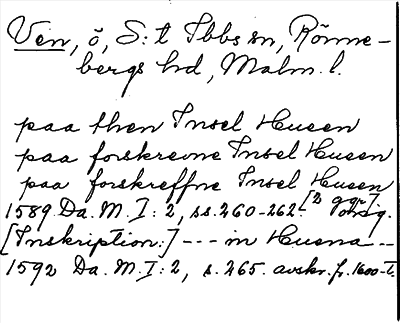 Ven, ö, S:t Ibbs sn, Rönne-
bergs hd, Malm. l.
paa then Insel Hueen
paa forskreone Insel Huseen
paa forskreffne Insel Hueen
1589 Da. M. I: 2, ss. 260-262. [2 ggr]
[Inskription:] --- in Huena --
1592 Da. M. I: 2, s. 265. avskr. fr. 1600-t.